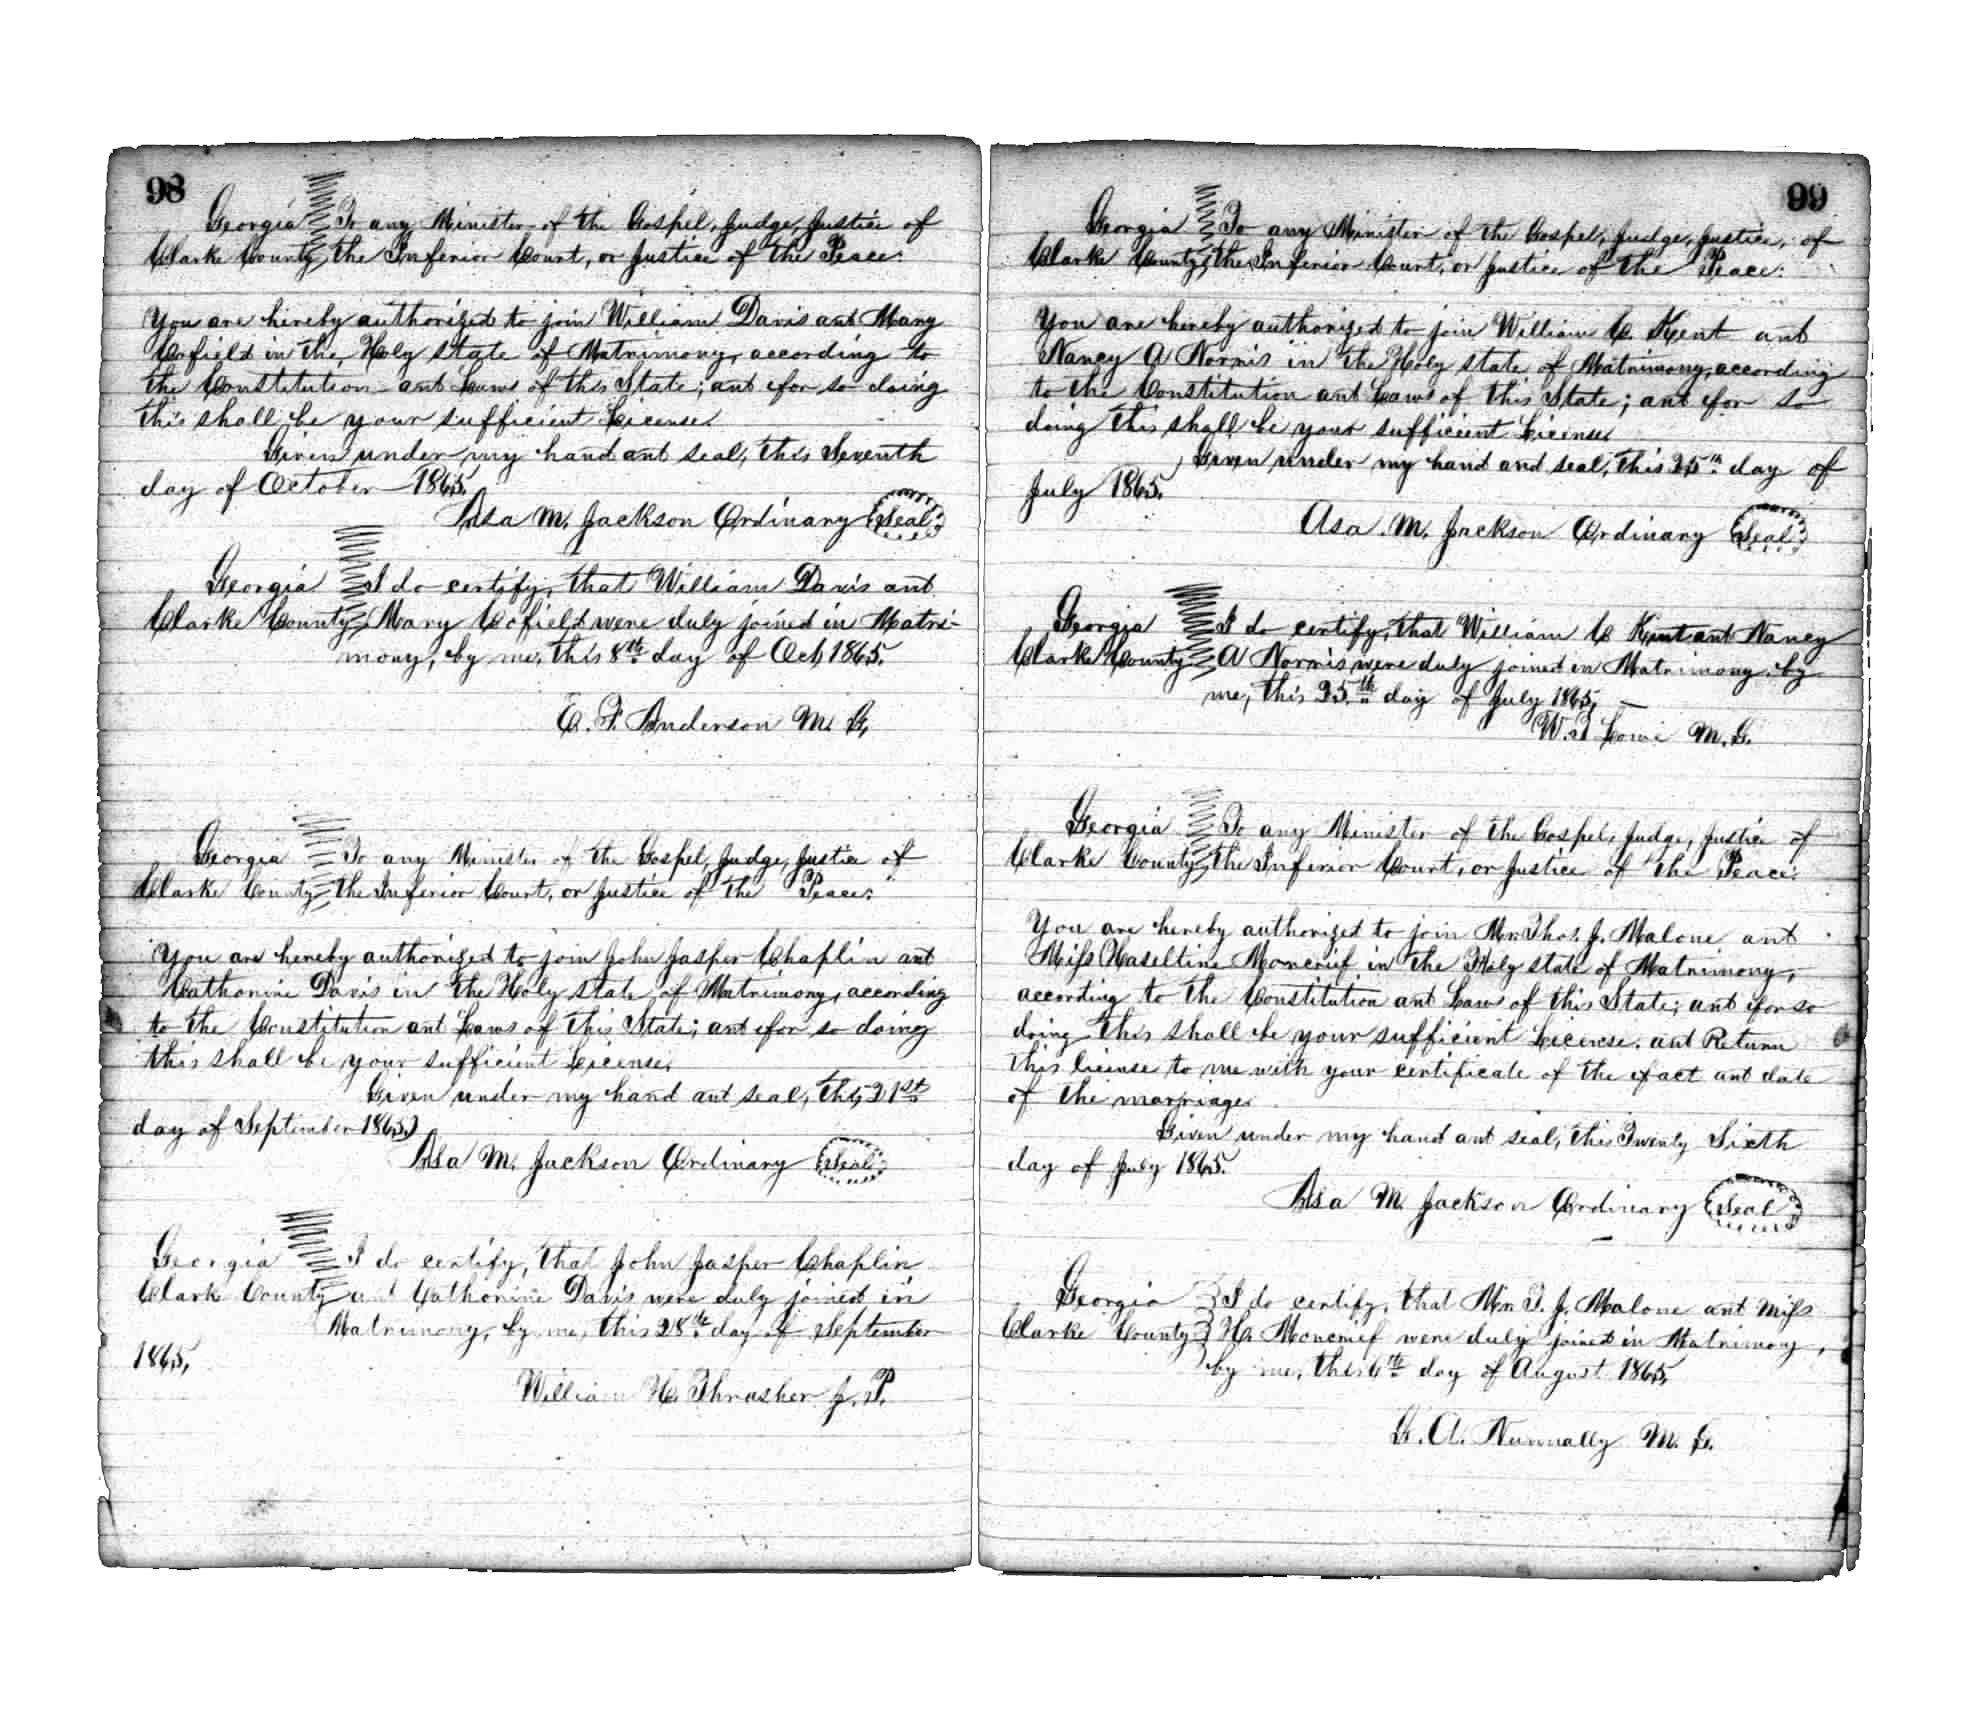 98
Georgia To any Minister of the Gospel, Judge, Justice of
Clarke County, the Inferior Court, or Justice of the Peace:
You are hereby authorized to join William Davis and Mary
Cofield in the Holy state of Matrimony, according to
the Constitution and Laws of this State; and for so doing
this shall be your sufficient License.
Given under my hand and seal, this Seventh
day of October 1865.
Asa M. Jackson Ordinary Seal
Georgia I do certify, that William Davis and
Clarke County, Mary Cofield were duly joined in Matri-
mony, by me, this 8th day of Oct, 1865.
E. F. Anderson M. G,
Georgia To any Minister of the Gospel, Judge, Justice of
Clarke County, the Inferior Court, or Justice of the Peace:
You are hereby authorized to join John Jasper Chaplin and
Cathorine Davis in the Holy state of Matrimony, according
to the Constitution and Laws of this State; and for so doing
this shall be your sufficient License.
Given under my hand and seal, this 21st
day of September 1865.
Asa M. Jackson Ordinary Seal
Georgia I do certify, that John Jasper Chaplin
Clark County and Cathorine Davis were duly joined in
Matrimony, by me, this 28th day of September
1865,
William H. Thrasher J. P.
99
Georgia To any Minister of the Gospel, Judge, Justice, of
Clarke County, the Inferior Court, or Justice of the Peace:
You are hereby authorized to join William C. Kent and
Nancy A Norris in the Holy state of Matrimony, according
to the Constitution and Laws of this State; and for so
doing this shall be your sufficient License.
Given under my hand and seal, this 25th day of
July 1865.
Asa. M. Jackson Ordinary Seal
Georgia I do certify, that William C Kent and Nancy
Clarke County A Norris were duly joined in Matrimony by
me, this 25th day of July 1865,
W. J M. G.
Georgia To any Minister of the Gospel, Judge, Justice of
Clarke County, the Inferior Court, or Justice of the Peace:
You are hereby authorized to join Mr. Thos. J. Malone and
Miss Haseltine Moncrief in the Holy state of Matrimony,
according to the Constitution and Law of this State; and for so
doing this shall be your sufficient License. and Return
this license to me with your certificate of the fact and date
of the marriage.
Given under my hand and seal, this Twenty Sixth
day of July 1865.
Asa M. Jackson Ordinary Seal
Georgia I do certify, that Mr. T. J. Malone and Miss
Clarke County H. Moncrief were duly joined in Matrimony,
by me, this 6th day of August 1865,
G. A. Nunnally M. G.